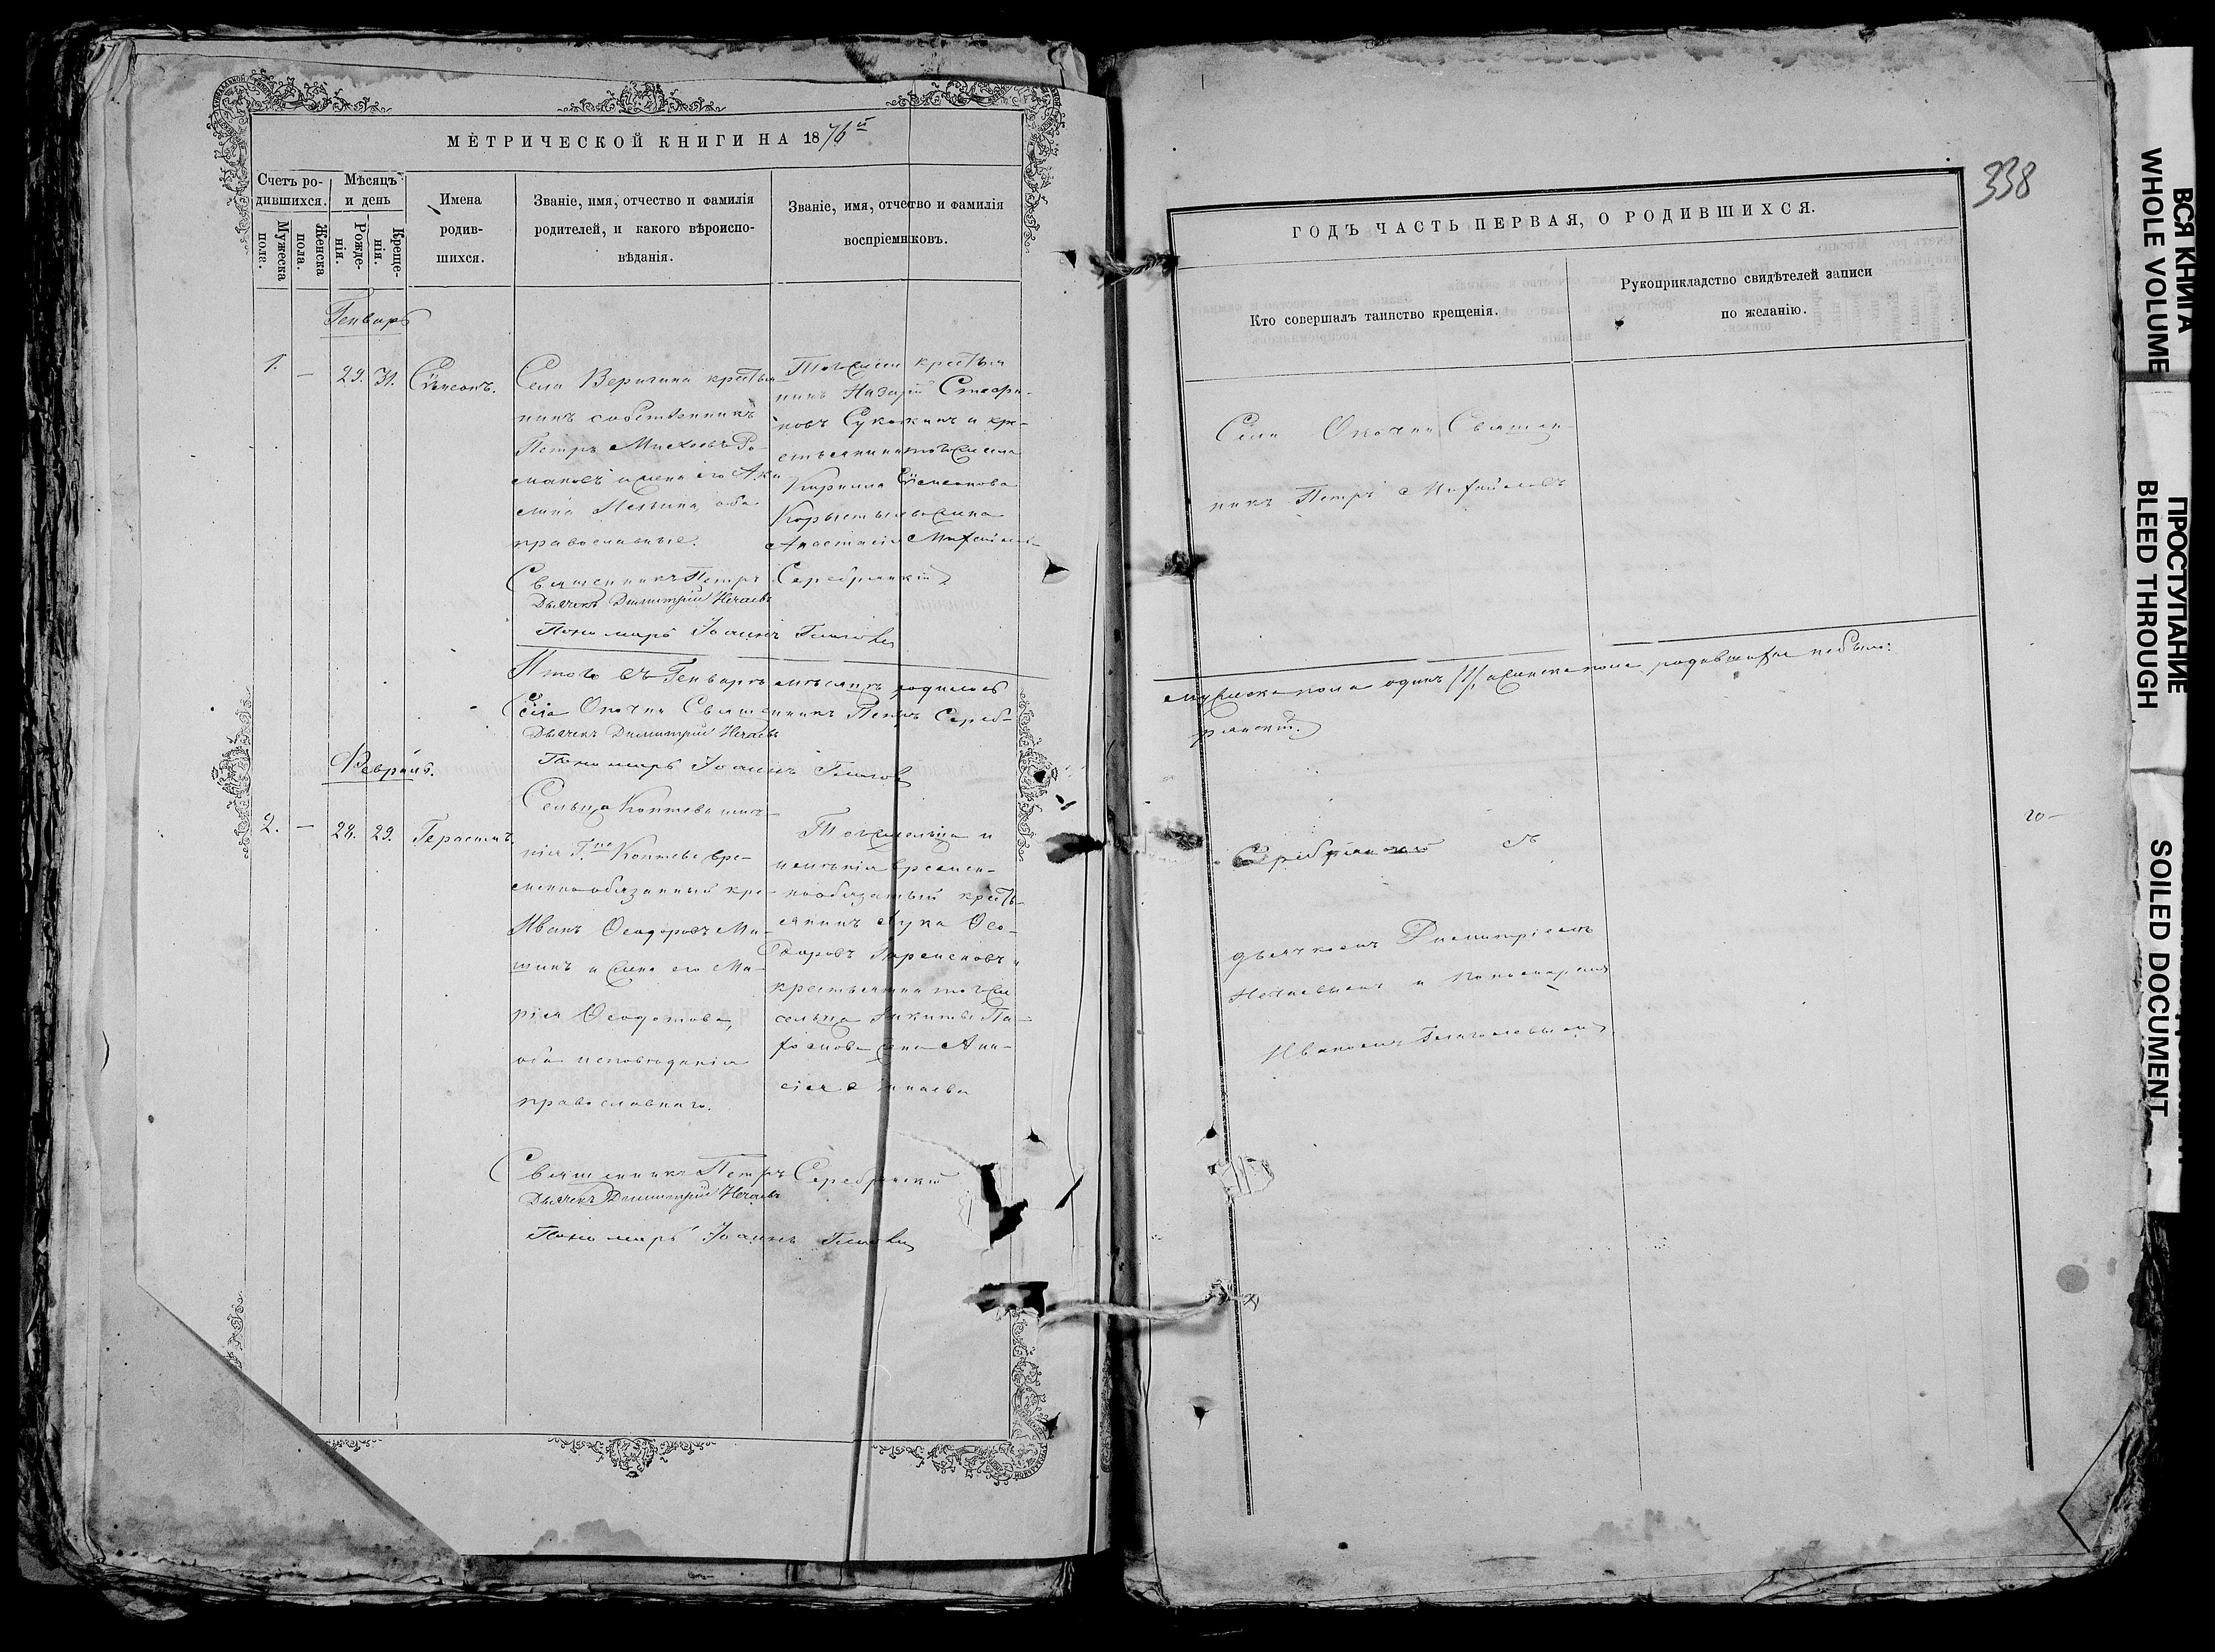 МЕТРИЧЕСКОЙ КНИГИ НА 1876й
Счетъ ро-
дившихся.
Мужеска
пола.
Женска
пола.
Мѣсяцъ
и день
Рожде-
нія.
Креще-
нія.
Имена
родив-
шихся.
Званіе, имя, отчество и фамилія
родителей, и какого вѣроиспо-
вѣданія.
Званіе, имя, отчество и фамилія
воспріемниковъ.
Генварь
1. — 29. 31. Сѵмеонъ.
Села Веригина крестья-
нинъ собственникъ
Петръ Михеевъ Ро-
мановъ и жена его
оба
православные.
Тогоже села крестья-
нинъ Назарій
и кре-
стьянина тогоже села
Кирилла Сѵмеонова
жена
Анастасія Михайлова
Священникъ Петръ Серебрянскій
Дьячекъ Димитрій Нечаевъ
Пономарь Іоаннъ
Итого въ Генварѣ мѣсяцѣ родилось
Села Окочни Священникъ Петръ Сереб-
Дьячекъ Димитрій Нечаевъ
Пономарь Іоаннъ
Февраль.
2. — 28. 29. Герасимъ.
Сельца Коптева имѣ-
нія Гна Коптева вре-
меннообязанный кре-
Иванъ Ѳеодоровъ Ми-
шинъ и жена его Ма-
рія Ѳеодотова,
оба исповѣданія
православнаго.
Тогоже сельца и
имѣнія времен-
нообязаный кресть-
янинъ Лука Ѳео-
доровъ и
крестьянина тогоже
сельца Никиты Па-
хомова жена
Священникъ Петръ Серебрянскій
Дьячекъ Димитрій Нечаевъ
Пономарь Іоаннъ
338
ГОДЪ ЧАСТЬ ПЕРВАЯ, О РОДИВШИХСЯ.
Кто совершалъ таинство крещенія.
Рукоприкладство свидѣтелей записи
по желанію.
Села Окочни Священ-
никъ Петръ Михайловъ
мужеска пола одинъ /1/, а женска пола родившихся не было.
рянскій.
Серебрянскій съ
дьячкомъ Димитріемъ
Нечаевымъ и Пономаремъ
Иваномъ Глаголевымъ.
ВСЯ КНИГА
WHOLE VOLUME
ПРОСТУПАНИЕ
BLED THROUGH
SOILED DOCUMENT